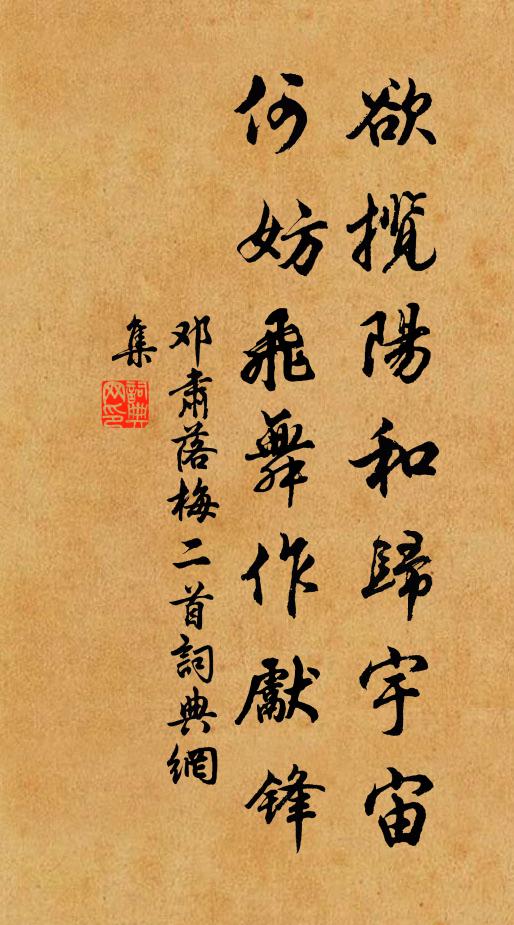 欲攬陽和歸宇宙
何妨飛舞作獻鋒
邓肅落梅二首詞典網
集
詞典
网印